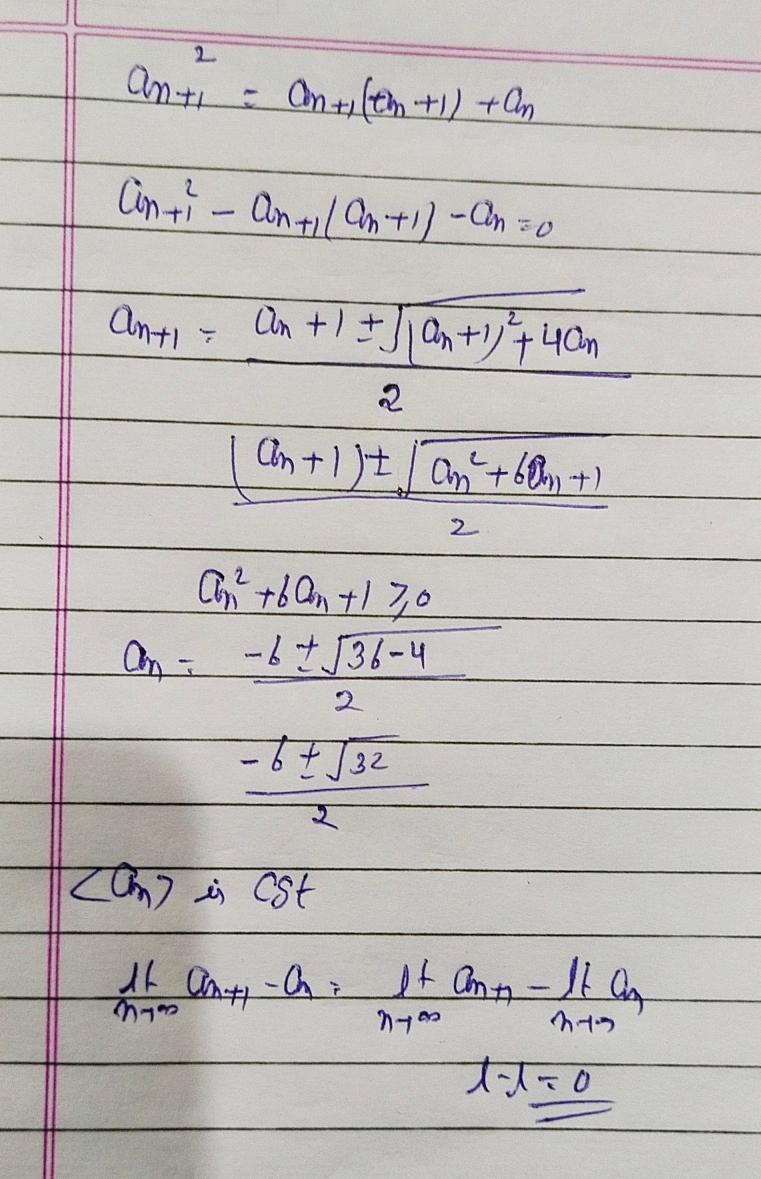 an+1² = an+1(an+1) + an
an+1² - an+1(an+1) - an = 0
an+1 = an+1 ± √(an+1)² + 4an / 2
(an+1) ± √an² + 6an + 1 / 2
an² + 6an + 1 ≥ 0
an = -6 ± √36-4 / 2
-6 ± √32 / 2
<an> is cgt
lt n→∞ an+1 - an = lt n→∞ an+1 - lt n→∞ an
l-l = 0